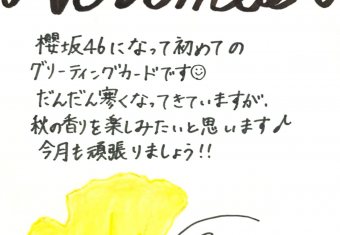 櫻坂46になって初めての
グリーティングカードです☺
だんだん寒くなってきていますが、
秋の香りを楽しみたいと思います♪
今月も頑張りましょう!!